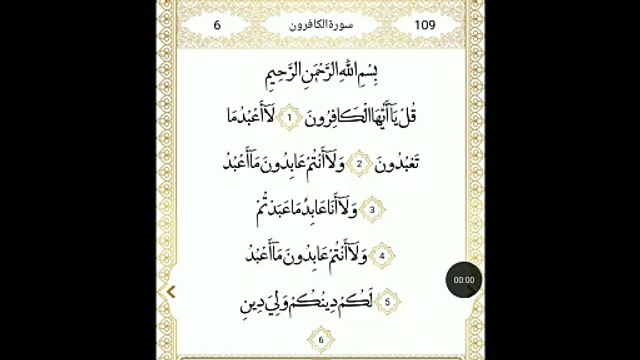 109 سورة الكافرون 6
بِسْمِ اللهِ الرَّحْمٰنِ الرَّحِيْمِ
قُلْ يَآ أَيُّهَا الْكَافِرُونَ 1 لَآ أَعْبُدُ مَا
تَعْبُدُونَ 2 وَلَآ أَنْتُمْ عَابِدُونَ مَآ أَعْبُدُ
3 وَلَآ أَنَا عَابِدٌ مَا عَبَدْتُّمْ
4 وَلَآ أَنْتُمْ عَابِدُونَ مَآ أَعْبُدُ
5 لَكُمْ دِيْنُكُمْ وَلِيَ دِيْنِ
6
00:00